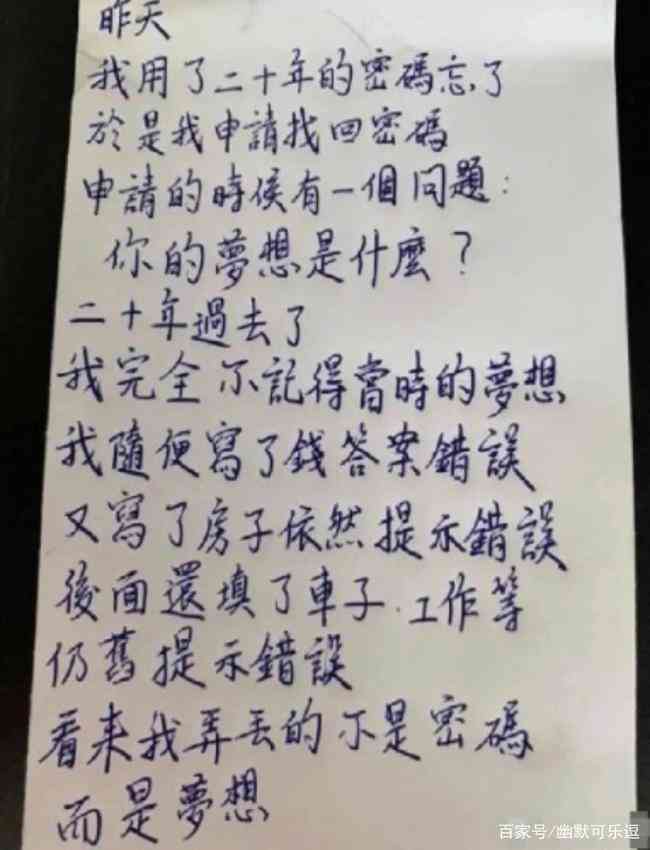 昨天
我用了二十年的密碼忘了
於是我申請找回密碼
申請的時侯有一個問題：
你的夢想是什麼？
二十年過去了
我完全不記得當時的夢想
我隨便寫了錢答案錯誤
又寫了房子依然提示錯誤
後面還填了車子.工作等
仍舊提示錯誤
看来我弄丢的不是密碼
而是夢想
百家号/幽默可乐逗